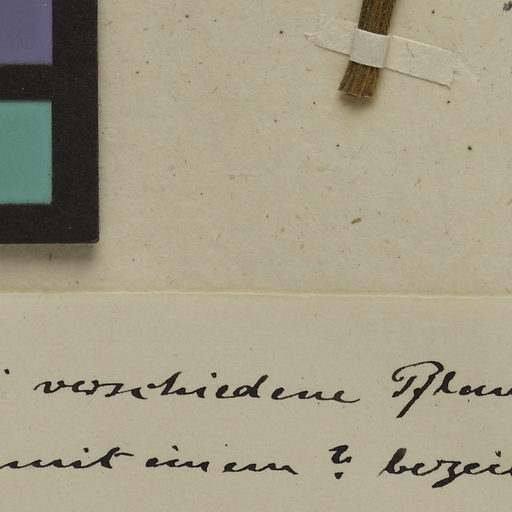 verschiedene Pflan
mit einem ? bezei